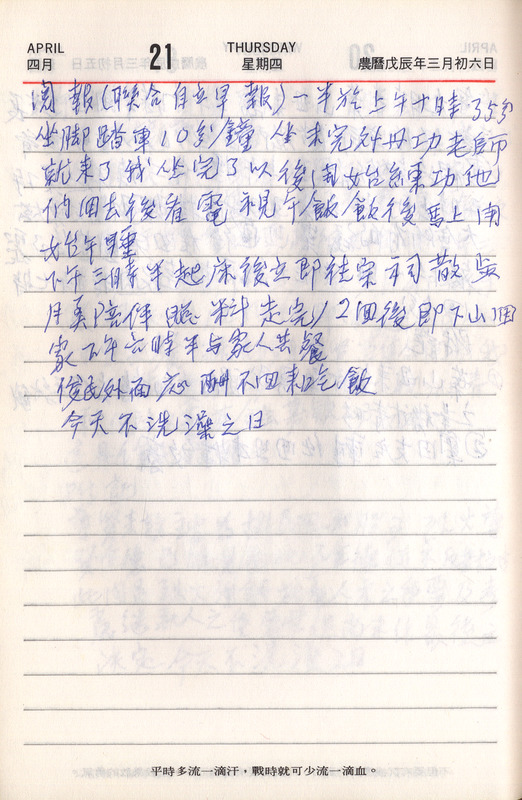 APRIL 21 THURSDAY
四月 星期四 農曆戊辰年三月初六日
閱報(聯合自立早報)一半於上午十時35分
坐脚踏車10分鐘 坐未完 功老師
就来了我坐完了以後開始練功他
們回去後看電視午飯飯後馬上開
始午睡
下午三時半起床後立即往宗祠散步
月美陪伴 走完12回後即下山回
家下午六時半与家人共餐
俊民外面应酬不回来吃飯
今天不洗澡之日
平時多流一滴汗,戰時就可少流一滴血。